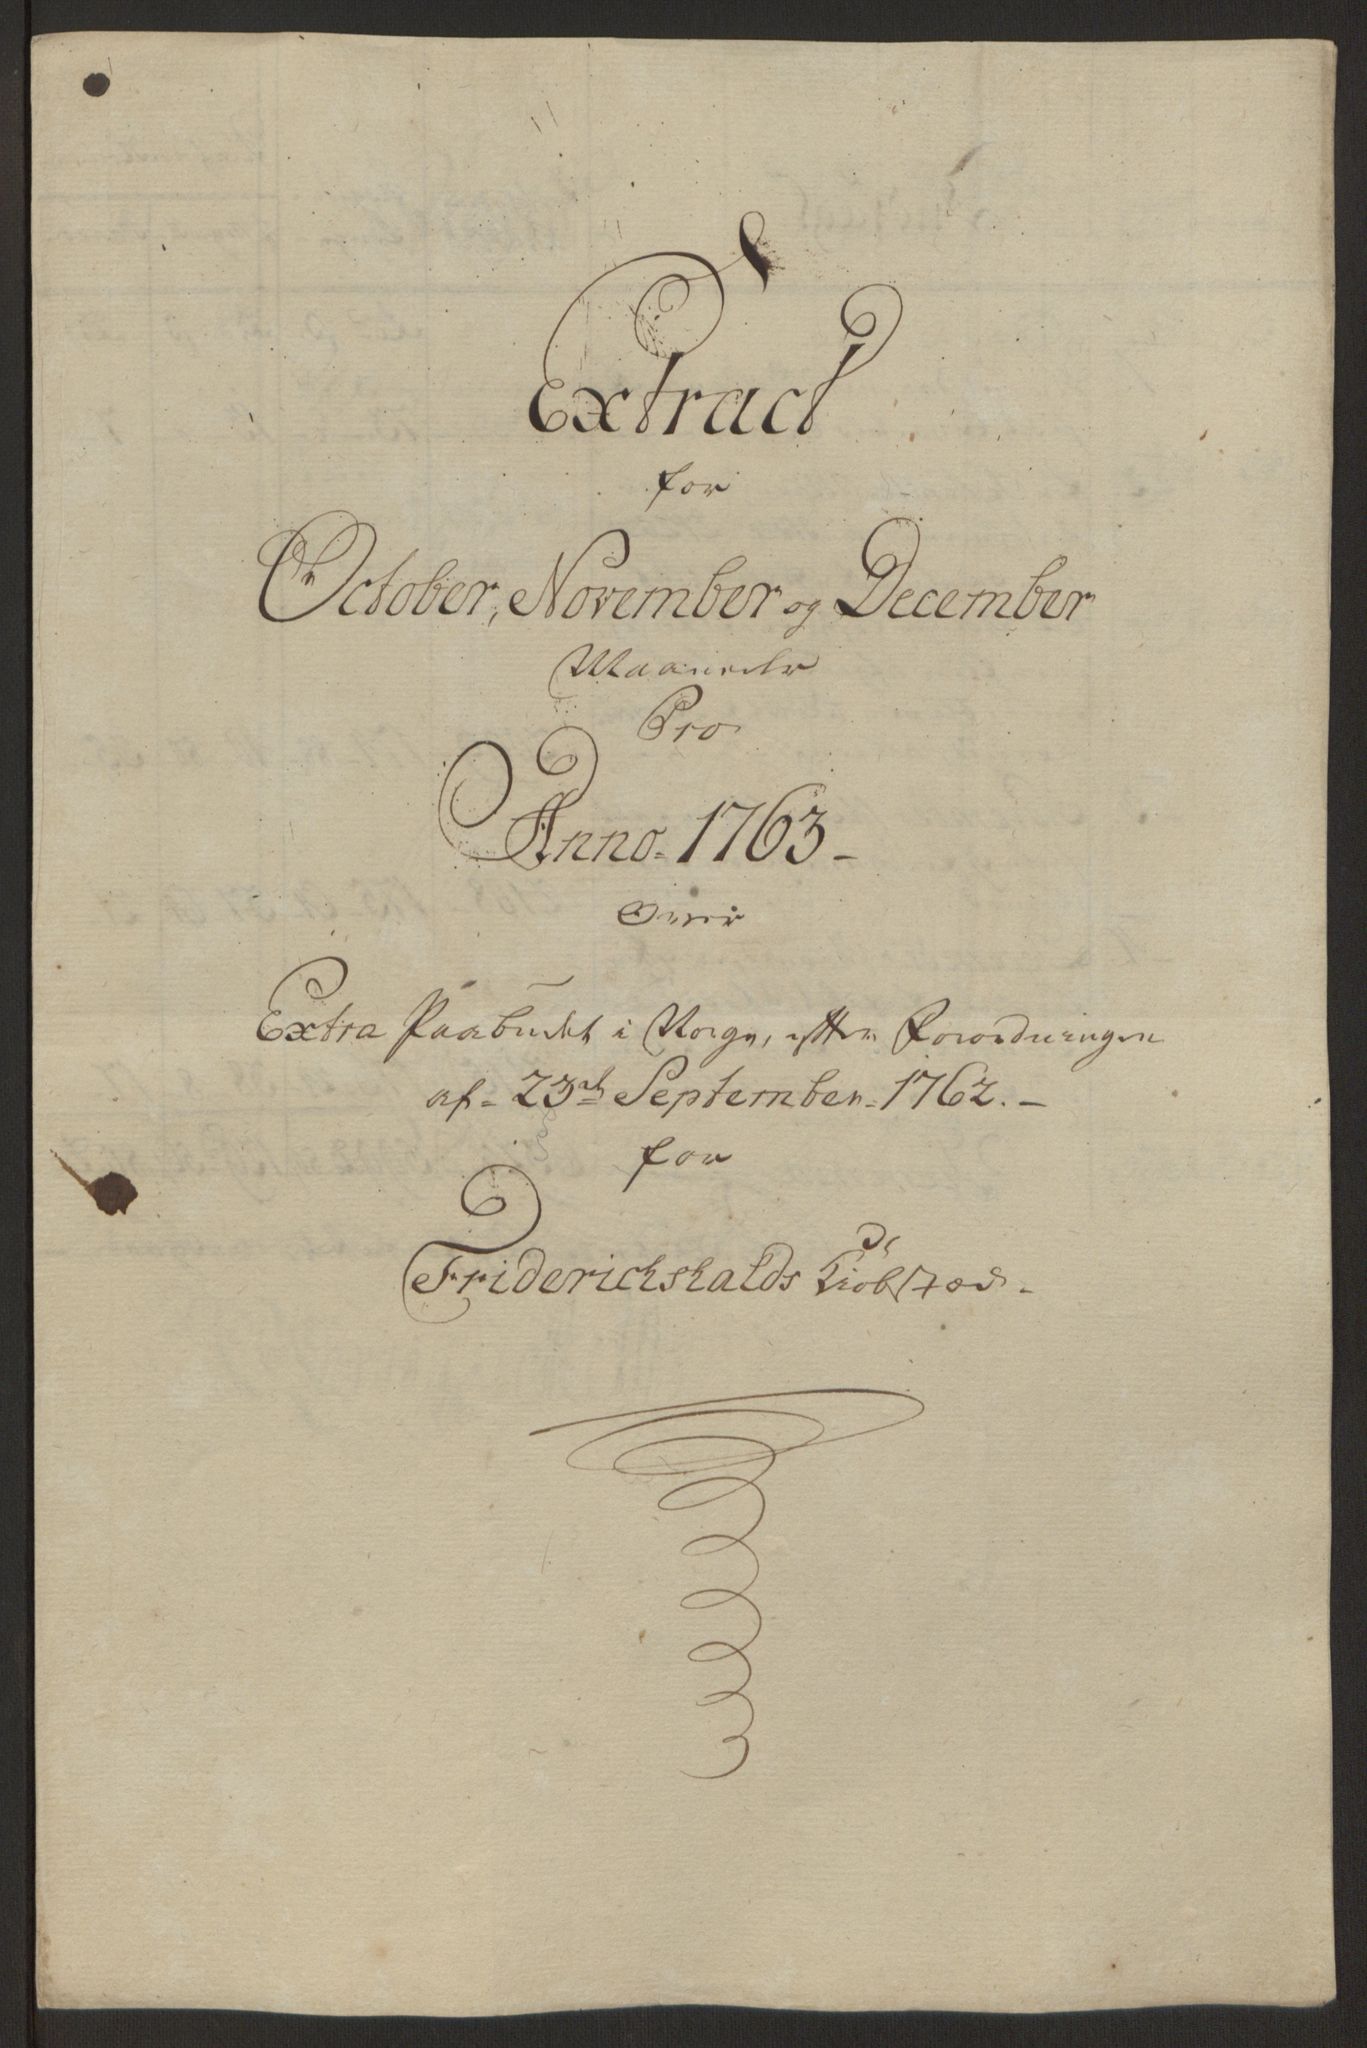 Extract
for
October, November og December
Maaneder
Pro
Anno 1763 -
Over
Extra Paabudet i Norge, efter Forordningen
af 23de September 1762. -
for
Friderichshalds Kiöbstæd.